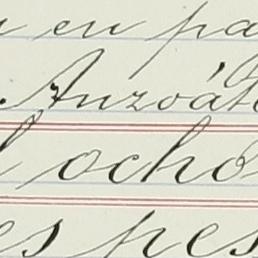 en pa
Anzoát
ocho
es pes